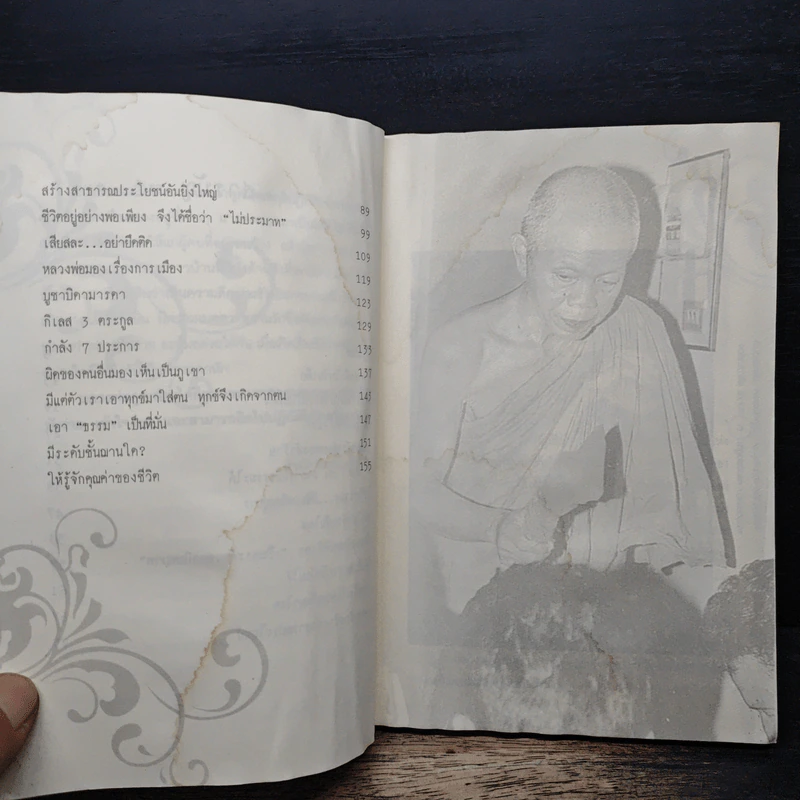 สร้างสาธารณประโยชน์อันยิ่งใหญ่ 89
ชีวิตอยู่อย่างพอเพียง จึงได้ชื่อว่า "ไม่ประมาท" 99
เสียสละ...อย่ายึดติด 109
หลวงพ่อมองเรื่องการเมือง 119
บูชาบิดามารดา 123
กิเลส 3 ตระกูล 129
กำลัง 7 ประการ 133
ผิดของคนอื่นมองเห็นเป็นภูเขา 137
มีแต่ตัวเราเอาทุกข์มาใส่ตน ทุกข์จึงเกิดจากตน 143
เอา "ธรรม" เป็นที่มั่น 147
มีระดับชั้นฌานใด? 151
ให้รู้จักคุณค่าของชีวิต 155
11